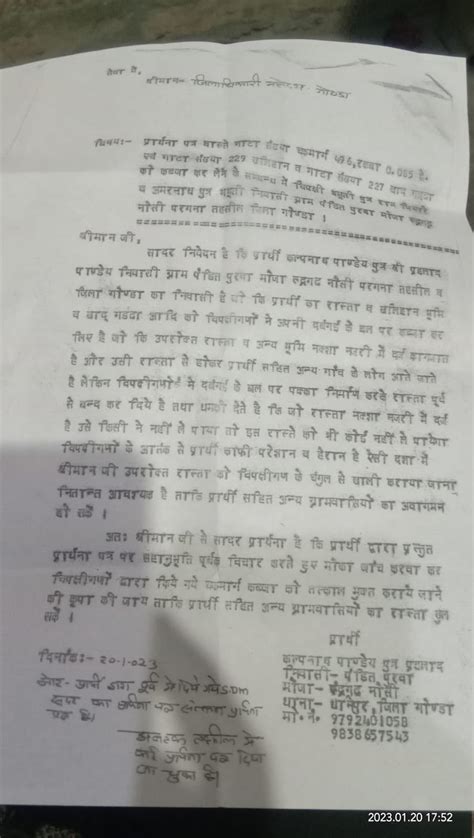 सेवा में,
श्रीमान- जिलाधिकारी महोदय गोण्डा
विषय:- प्रार्थना पत्र वास्ते गाटा संख्या चकमार्ग 496, रकबा 0.085 हे.
एवं गाटा संख्या 229 खलिहान व गाटा संख्या 227 खाद गड्ढा
को कब्जा कर लेने के सम्बन्ध में विपक्षी
व अमरनाथ पुत्र निवासी ग्राम पंडित पुरवा मौजा रुद्रगढ़
नौसी परगना तहसील जिला गोण्डा ।
श्रीमान जी,
सादर निवेदन है कि प्रार्थी कल्पनाथ पाण्डेय पुत्र श्री प्रहलाद
पाण्डेय निवासी ग्राम पंडित पुरवा मौजा रुद्रगढ नौसी परगना तहसील व
जिला गोण्डा का निवासी है जो कि प्रार्थी का रास्ता व खलिहान भूमि
व खाद गडढा आदि को विपक्षीगणों ने अपनी दबंगई के बल पर कब्जा कर
लिए है जो कि उपरोक्त रास्ता व अन्य भूमि नक्शा नजरी में दर्ज कागजात
है और उसी रास्ता से होकर प्रार्थी सहित अन्य गाँव के लोग आते जाते
है लेकिन विपक्षीगणों ने दबंगई के बल पर पक्का निर्माण करके रास्ता पूर्व
से बन्द कर दिये है तथा धमकी देते है कि जो रास्ता नक्शा नजरी में दर्ज
है उसे किसी ने नहीं ले पाया तो इस रास्ते को भी कोई नहीं ले पायेगा
विपक्षीगणों के आतंक से प्रार्थी काफी परेशान व हैरान है ऐसी दशा में
श्रीमान जी उपरोक्त रास्ता को विपक्षीगण के चंगुल से खाली कराया जाना
नितान्त आवश्यक है ताकि प्रार्थी सहित अन्य ग्रामवासियों का आवागमन
हो सकें ।
अतः श्रीमान जी से सादर प्रार्थना है कि प्रार्थी द्वारा प्रस्तुत
प्रार्थना पत्र पर सहानुभूति पूर्वक विचार करते हुए मौका जाँच करवा कर
विपक्षीगणों द्वारा किये गये चकमार्ग कब्जा को तत्काल मुक्त कराये जाने
की कृपा की जाय ताकि प्रार्थी सहित अन्य ग्रामवासियों का रास्ता खुल
सकें ।
प्रार्थी
कल्पनाथ पाण्डेय पुत्र प्रहलाद
निवासी- पंडित पुरवा
मौजा- रुद्रगढ नौसी
थाना- धानेपुर, जिला गोण्डा
मो. नं. 9792401058
9838657543
दिनांक:- 20-1-023
पूर्व में दिये गये SDM
का प्रार्थना पत्र संलग्न
है।
तहसील में
प्रार्थना पत्र दिया
जा चुका है।
2023.01.20 17:52